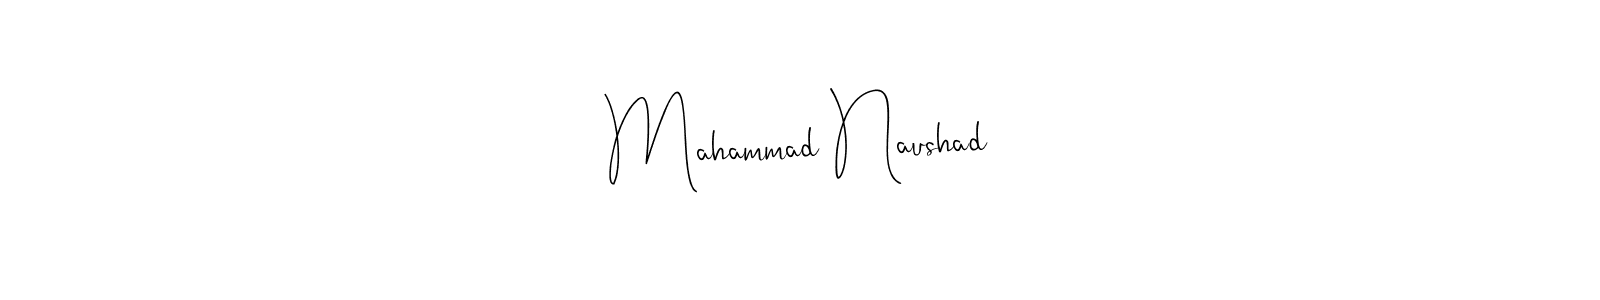 Mahammad Naushad